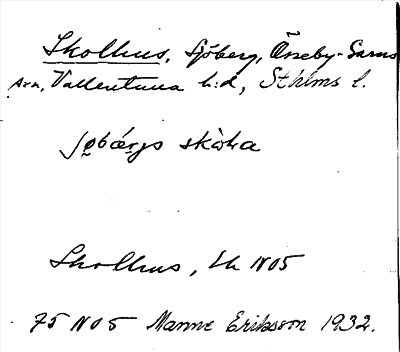 Skolhus, Sjöberg, Össeby-Garns
sn, Vallentuna h:d, Sthlms l.
sjöbärjs skòla
Skolhus, Ek NO5
75 NO5 Manne Eriksson 1932.